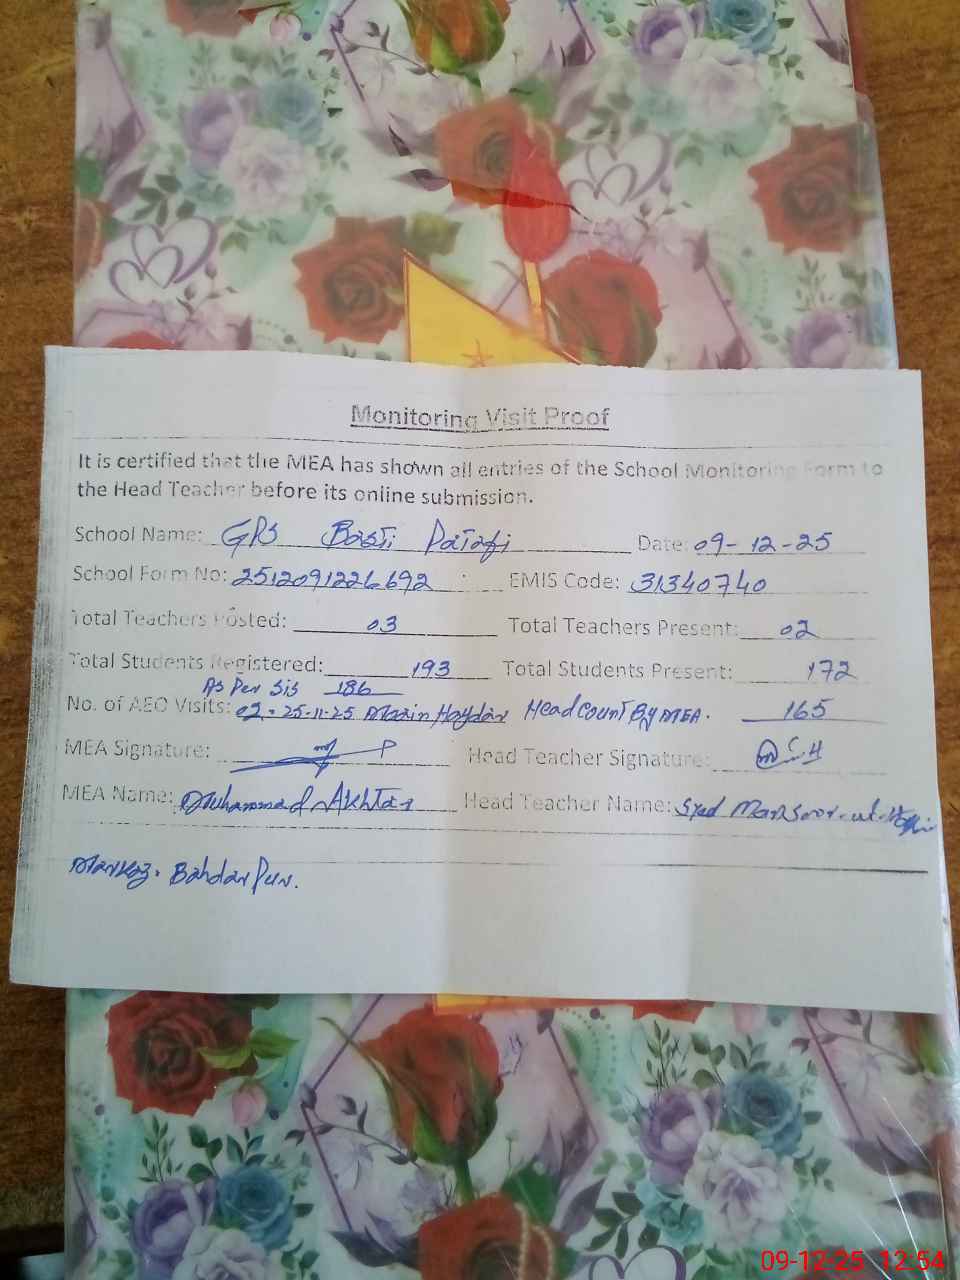 Monitoring Visit Proof
It is certified that the MEA has shown all entries of the School Monitoring Form to
the Head Teacher before its online submission.
School Name: GPS Basti Patafi Date: 09-12-25
School Form No: 2512091226692 EMIS Code: 31340740
Total Teachers Posted: 03 Total Teachers Present: 02
Total Students Registered: 193 Total Students Present: 172
As Per Sis 186
No. of AEO Visits: 02. 25-11-25 Head Count By MEA. 165
MEA Signature: Head Teacher Signature:
MEA Name: Muhammad Akhtar Head Teacher Name: Syed Mansoor-ul-
Markaz. Bahdar Pur.
09-12-25 12:54